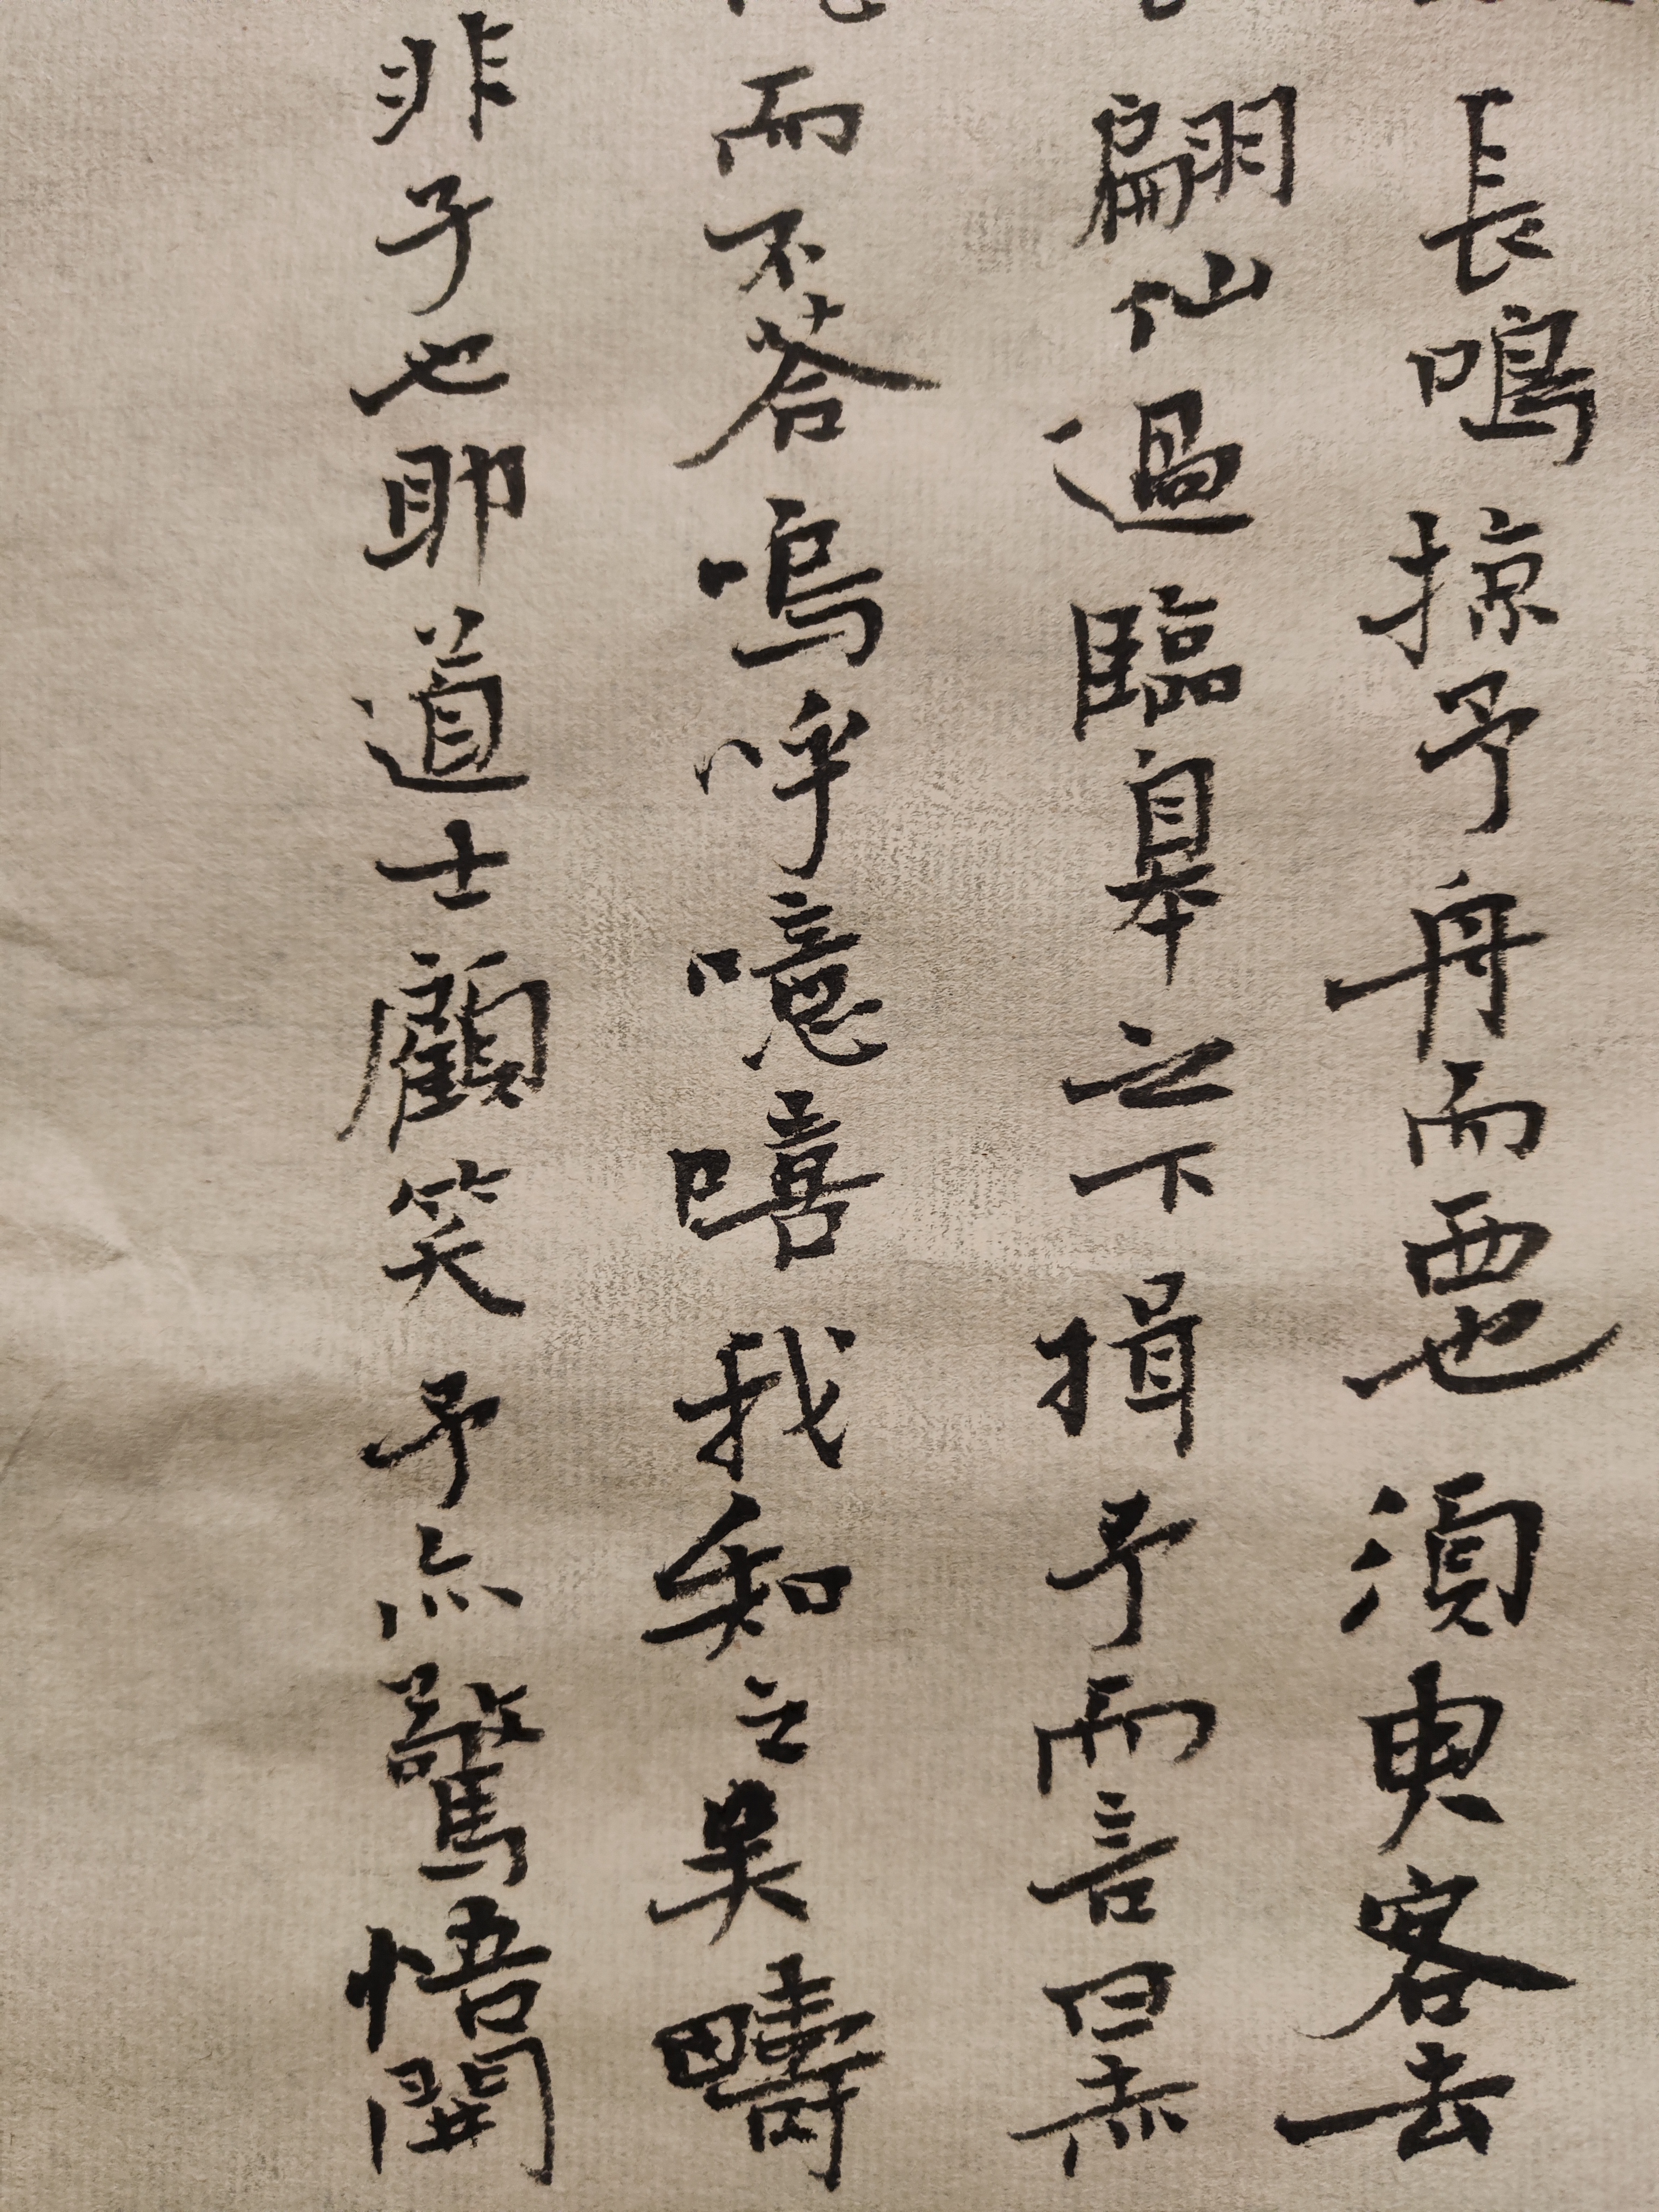 長鳴掠予舟而西也須臾客去
翩仙過臨皋之下揖予而言曰赤
而不荅嗚呼噫嘻我知之矣疇
非子也耶道士顧笑予亦驚悟開